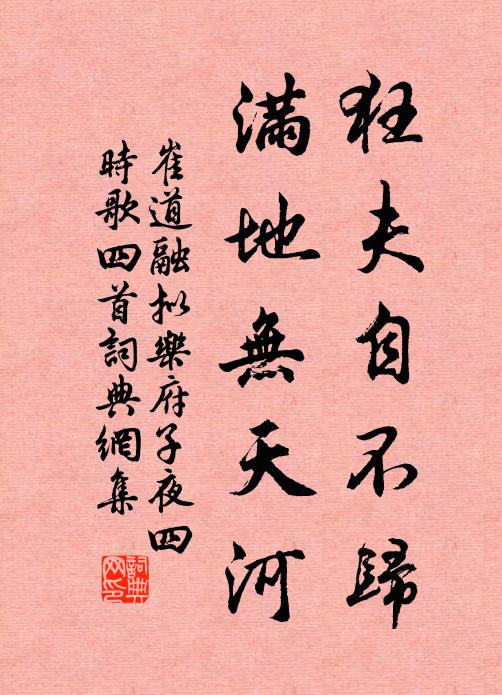 狂夫自不歸
滿地無天河
崔道融拟樂府子夜四
時歌四首詞典網集
詞典
网印